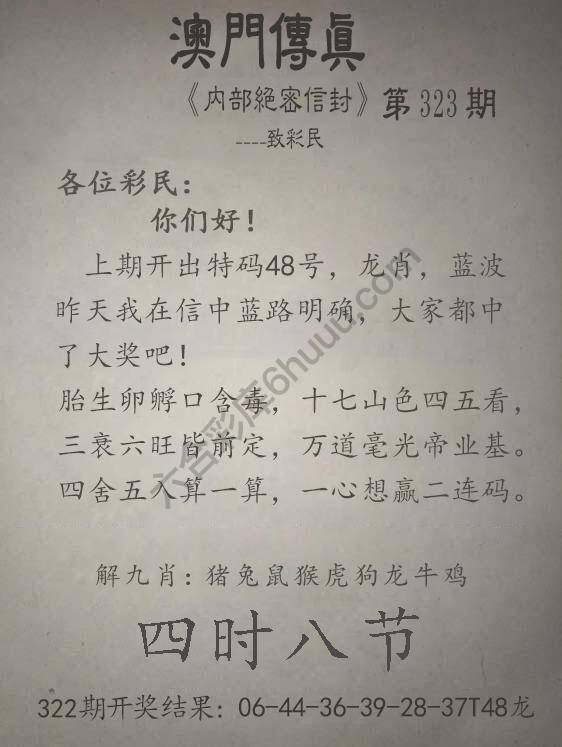 澳門傳真
《内部絕密信封》第323期
----致彩民
各位彩民：
你们好！
上期开出特码48号，龙肖，蓝波
昨天我在信中蓝路明确，大家都中
了大奖吧！
胎生卵孵口含毒，十七山色四五看，
三衰六旺皆前定，万道毫光帝业基。
四舍五入算一算，一心想赢二连码。
六合彩库6huuu.com
解九肖：猪兔鼠猴虎狗龙牛鸡
四时八节
322期开奖结果：06-44-36-39-28-37T48龙